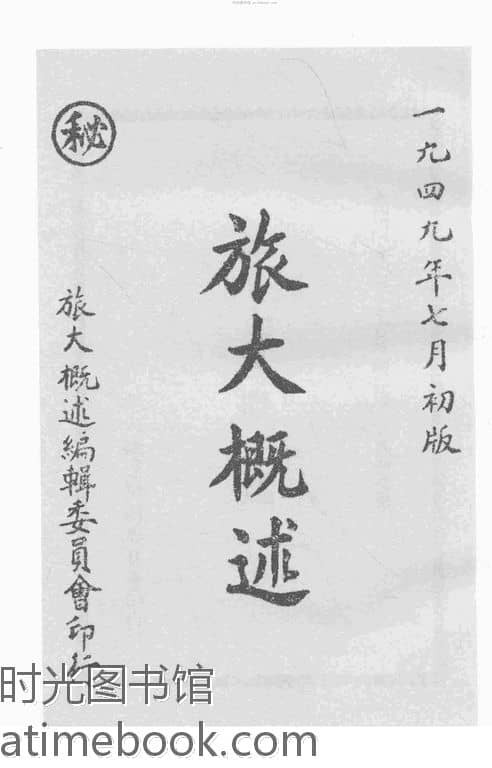 一九四九年七月初版
旅大概述
㊙
旅大概述編輯委員會印行
时光图书馆
atimebook.com